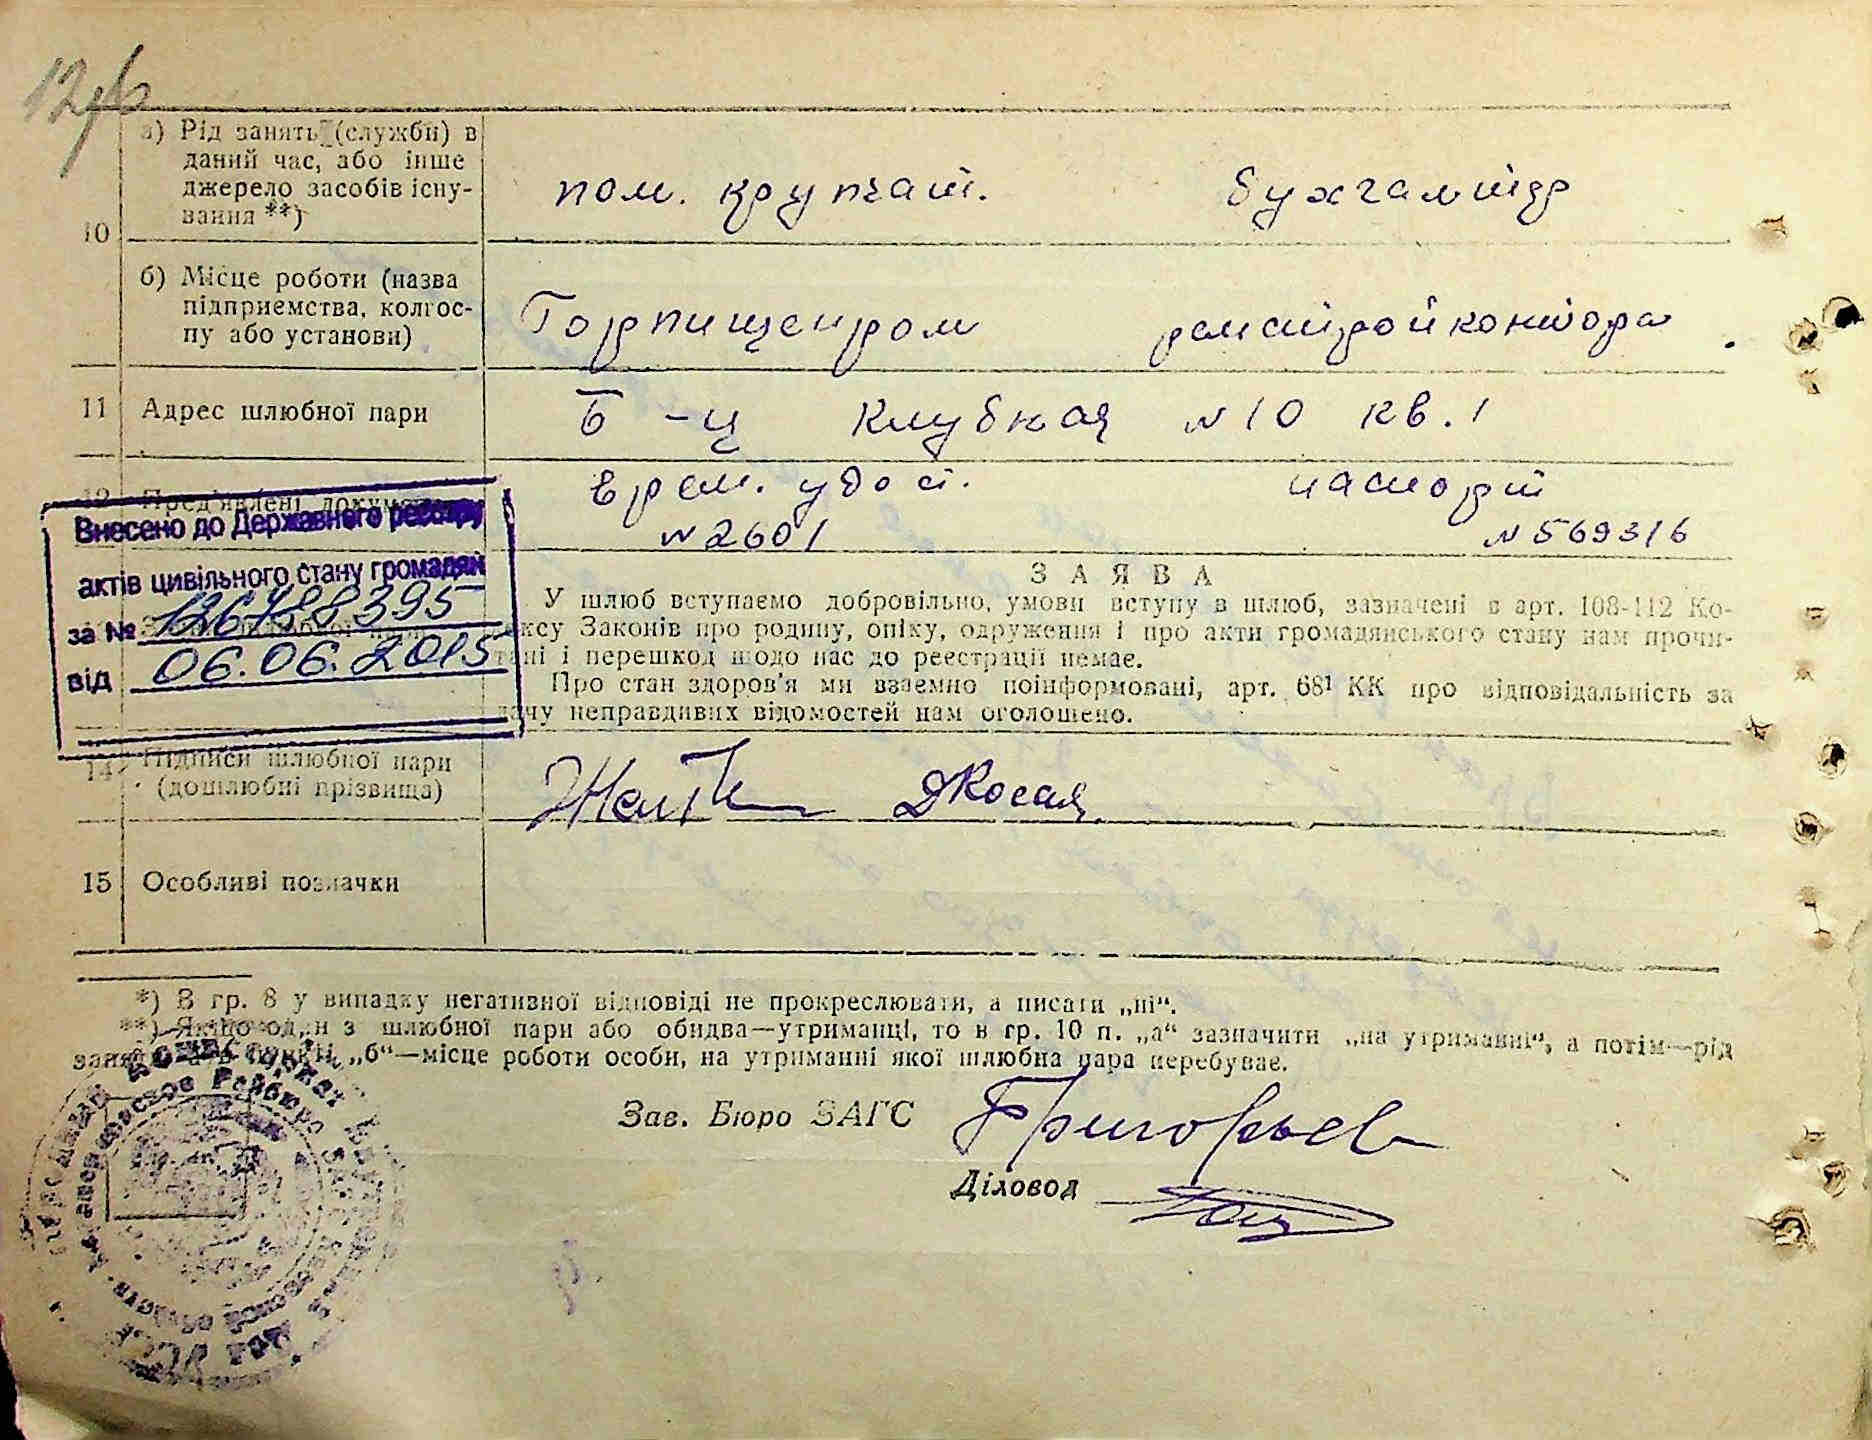 а) Рід занять (служби) в
даний час, або інше
джерело засобів існу-
вання **)
пом. крупчат. бухгалтер
10
б) Місце роботи (назва
підприємства, колгос-
пу або установи)
Горпищепром ремстройконтора
11 Адрес шлюбної пари
Б-ц Клубная №10 кв. 1
12 Пред'явлені документи
врем. удост. паспорт
№2601 №569316
Внесено до Державного реєстру
актів цивільного стану громадян
за № 126788395
від 06.06.2015
ЗАЯВА
У шлюб вступаємо добровільно, умови вступу в шлюб, зазначені в арт. 108-112 Ко-
дексу Законів про родину, опіку, одруження і про акти громадянського стану нам прочи-
тані і перешкод щодо нас до реєстрації немає.
Про стан здоров'я ми взаємно поінформовані, арт. 68¹ КК про відповідальність за
дачу неправдивих відомостей нам оголошено.
14 Підписи шлюбної пари
(дошлюбні прізвища)
ДКосая
15 Особливі позначки
*) В гр. 8 у випадку негативної відповіді не прокреслювати, а писати „ні“.
**) Якщо один з шлюбної пари або обидва—утриманці, то в гр. 10 п. „а“ зазначити „на утриманні“, а потім—рід
занять, а в пункті „б“—місце роботи особи, на утриманні якої шлюбна пара перебуває.
Зав. Бюро ЗАГС Григорьев
Діловод